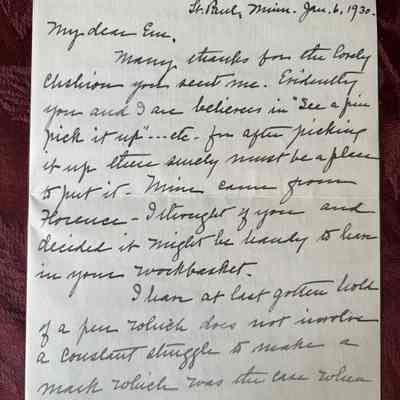 St. Paul, Minn. Jan. 6, 1930.
My dear Em,
Many thanks for the lovely
cushion you sent me. Evidently
you and I are believers in "See a pin
pick it up"---etc- for after picking
it up there surely must be a place
to put it- Mine came from
Florence- I thought of you and
decided it might be handy to have
in your workbasket.
I have at last gotten hold
of a pen which does not involve
a constant struggle to make a
mark which was the case when